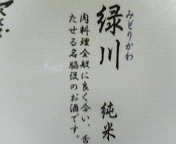 みどりかわ
緑川
純米
肉料理全般に良く合い、香
たせる名脇役のお酒です。